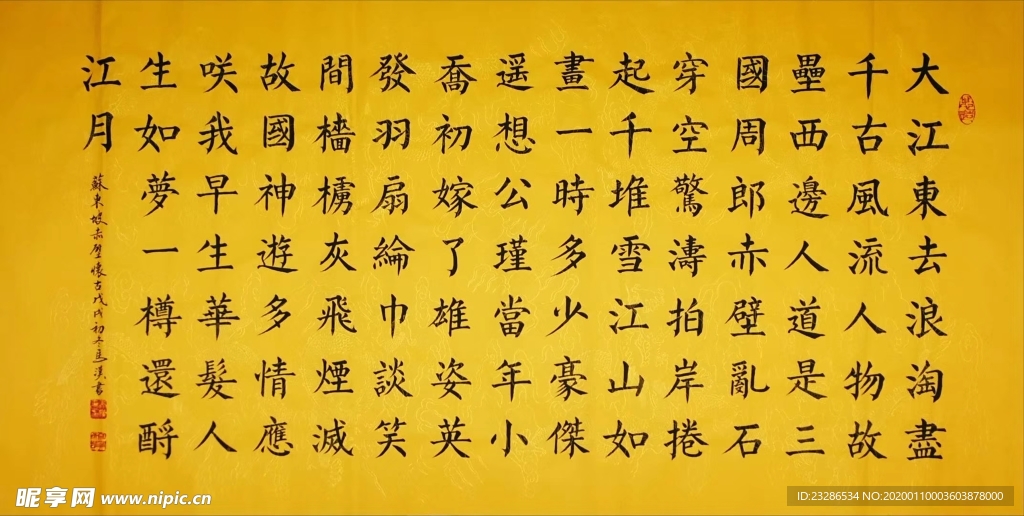 大江東去浪淘盡
千古風流人物故
壘西邊人道是三
國周郎赤壁亂石
穿空驚濤拍岸捲
起千堆雪江山如
畫一時多少豪傑
遥想公瑾當年小
喬初嫁了雄姿英
發羽扇綸巾談笑
間檣櫓灰飛煙滅
故國神遊多情應
咲我早生華髮人
生如夢一樽還酹
江月
蘇東坡赤壁懷古戊戌初冬馬書
昵享网 www.nipic.cn
ID:23286534 NO:20200110003603878000